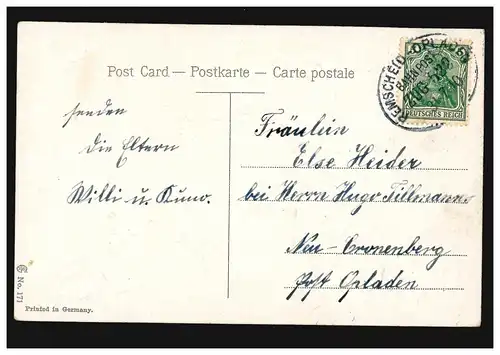 Post Card — Postkarte — Carte postale
REMSCHEID-OPLADEN
BAHNPOST
ZUG 522
DEUTSCHES REICH
senden
die Eltern
Willi u. Kuno.
Fräulein
Else Heider
bei Herrn Hugo Tillmanns
Neu-Cronenberg
Post Opladen
No. 171
Printed in Germany.